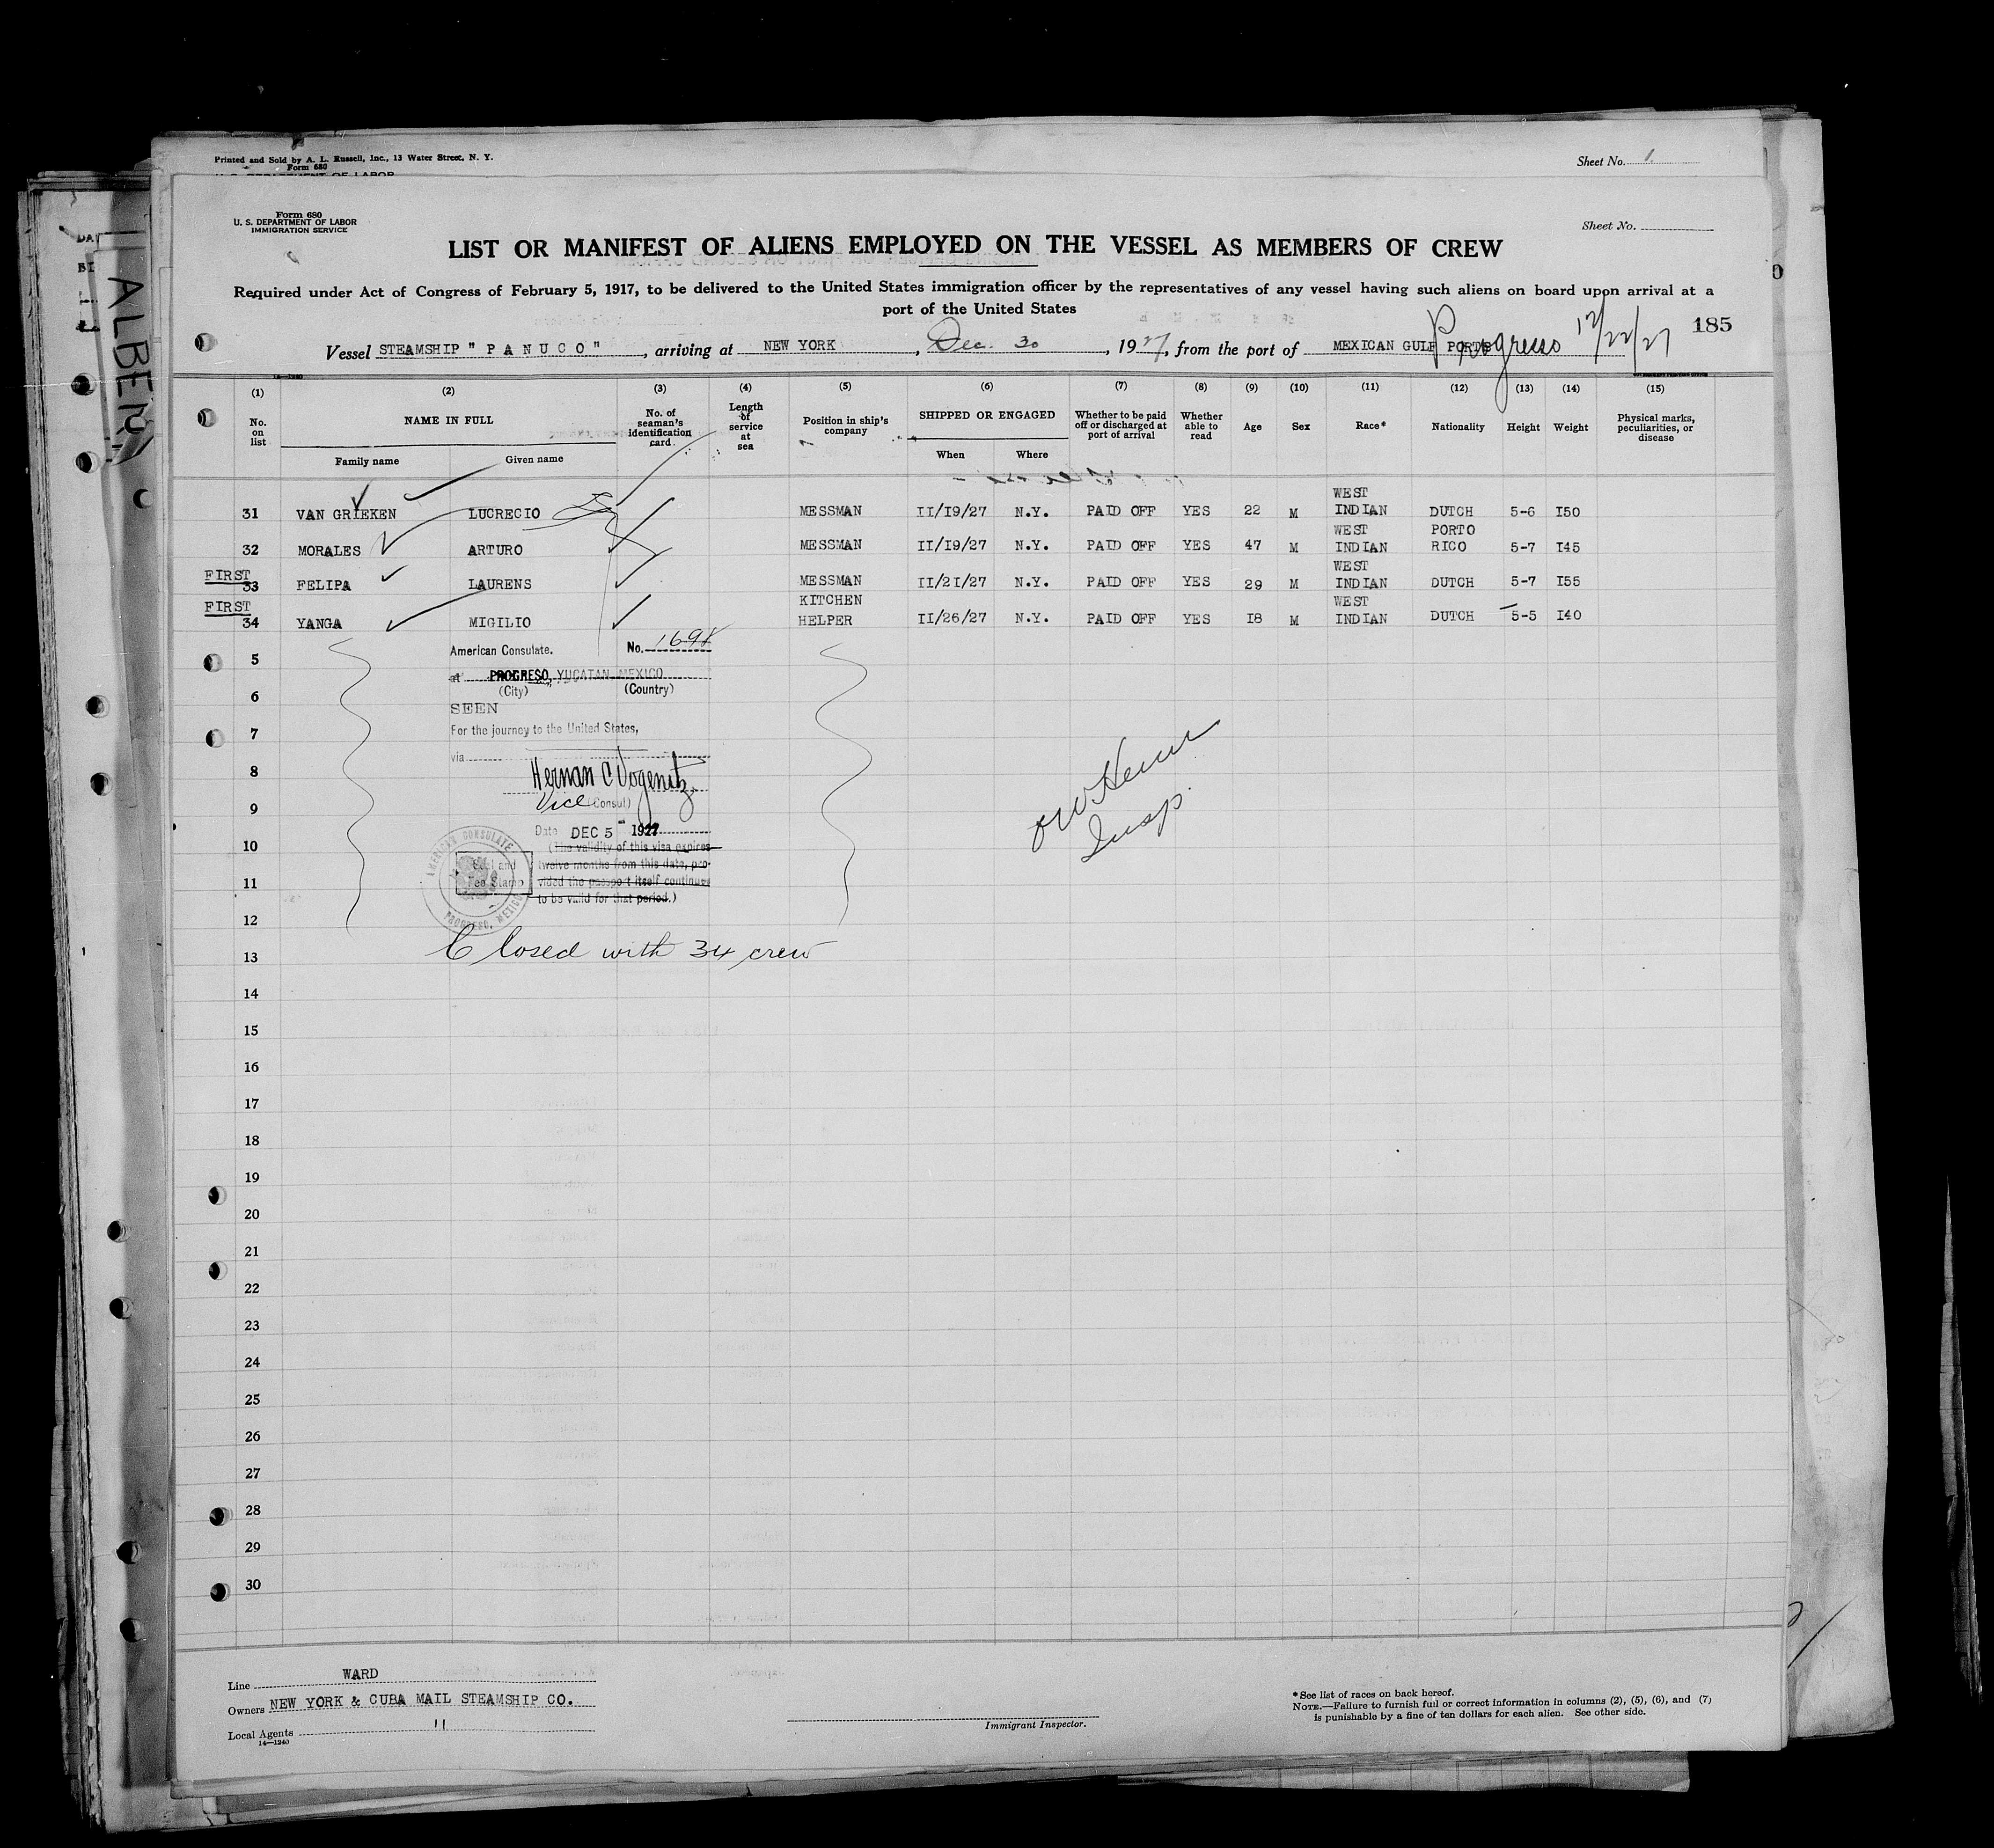 Printed and Sold by A. L. Russell, Inc., 13 Water Street, N. Y.
Form 680
U. S. DEPARTMENT OF LABOR
Sheet No. 1
Form 680
U. S. DEPARTMENT OF LABOR
IMMIGRATION SERVICE
Sheet No.
ALBER
LIST OR MANIFEST OF ALIENS EMPLOYED ON THE VESSEL AS MEMBERS OF CREW
Required under Act of Congress of February 5, 1917, to be delivered to the United States immigration officer by the representatives of any vessel having such aliens on board upon arrival at a
port of the United States
185
Vessel STEAMSHIP "PANUCO", arriving at NEW YORK, Dec. 30, 1927, from the port of MEXICAN GULF PORTS Progreso 12/22/27
(1) (2) (3) (4) (5) (6) (7) (8) (9) (10) (11) (12) (13) (14) (15)
No. on list NAME IN FULL No. of seaman's identification card Length of service at sea Position in ship's company SHIPPED OR ENGAGED Whether to be paid off or discharged at port of arrival Whether able to read Age Sex Race* Nationality Height Weight Physical marks, peculiarities, or disease
Family name Given name When Where
31 VAN GRIEKEN LUCRECIO MESSMAN 11/19/27 N.Y. PAID OFF YES 22 M WEST INDIAN DUTCH 5-6 150
32 MORALES ARTURO MESSMAN 11/19/27 N.Y. PAID OFF YES 47 M WEST INDIAN PORTO RICO 5-7 145
FIRST 33 FELIPA LAURENS MESSMAN 11/21/27 N.Y. PAID OFF YES 29 M WEST INDIAN DUTCH 5-7 155
FIRST 34 YANGA MIGILIO KITCHEN HELPER 11/26/27 N.Y. PAID OFF YES 18 M WEST INDIAN DUTCH 5-5 140
American Consulate. No. 1698
5
at PROGRESO, YUCATAN MEXICO
(City) (Country)
6
SEEN
7
For the journey to the United States,
via
8
Hernan C Vogenitz
Vice (Consul)
9
Date DEC 5 1927
10
(The validity of this visa expires
twelve months from this date, pro-
vided the passport itself continues
to be valid for that period.)
Seal and
Fee Stamp
AMERICAN CONSULATE
PROGRESO, MEXICO
11
12
Insp.
Closed with 34 crew
13
14
15
16
17
18
19
20
21
22
23
24
25
26
27
28
29
30
Line WARD
Owners NEW YORK & CUBA MAIL STEAMSHIP CO.
Local Agents "
14—1240
Immigrant Inspector.
*See list of races on back hereof.
NOTE.—Failure to furnish full or correct information in columns (2), (5), (6), and (7)
is punishable by a fine of ten dollars for each alien. See other side.